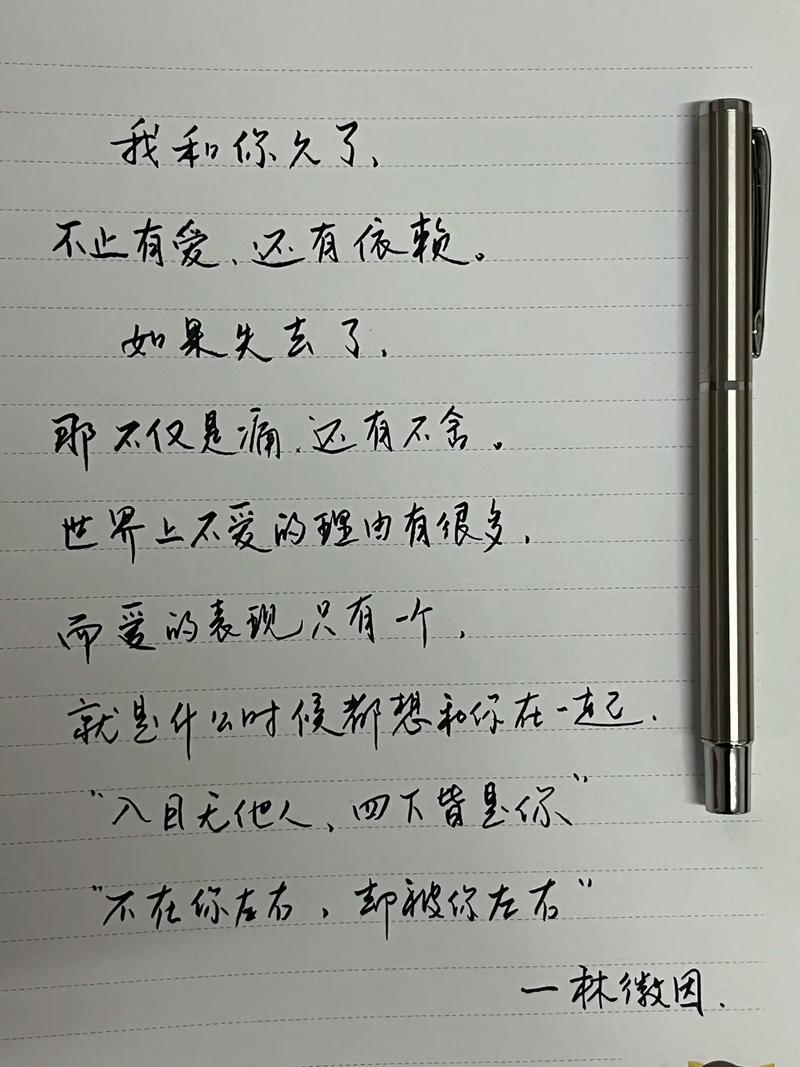 我和你久了，
不止有爱、还有依赖。
如果失去了，
那不仅是痛、还有不舍。
世界上不爱的理由有很多，
而爱的表现只有一个，
就是什么时候都想和你在一起.
“入目无他人、四下皆是你”
“不在你左右，却被你左右”
一林徽因.